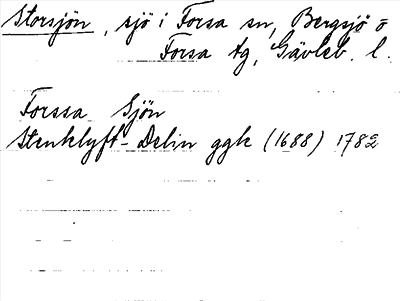 Storsjön, sjö i Forsa sn, Bergsjö o
Forsa tg, Gävleb. l.
Forssa Sjön
Stenklyft-Delin ggk (1688) 1782